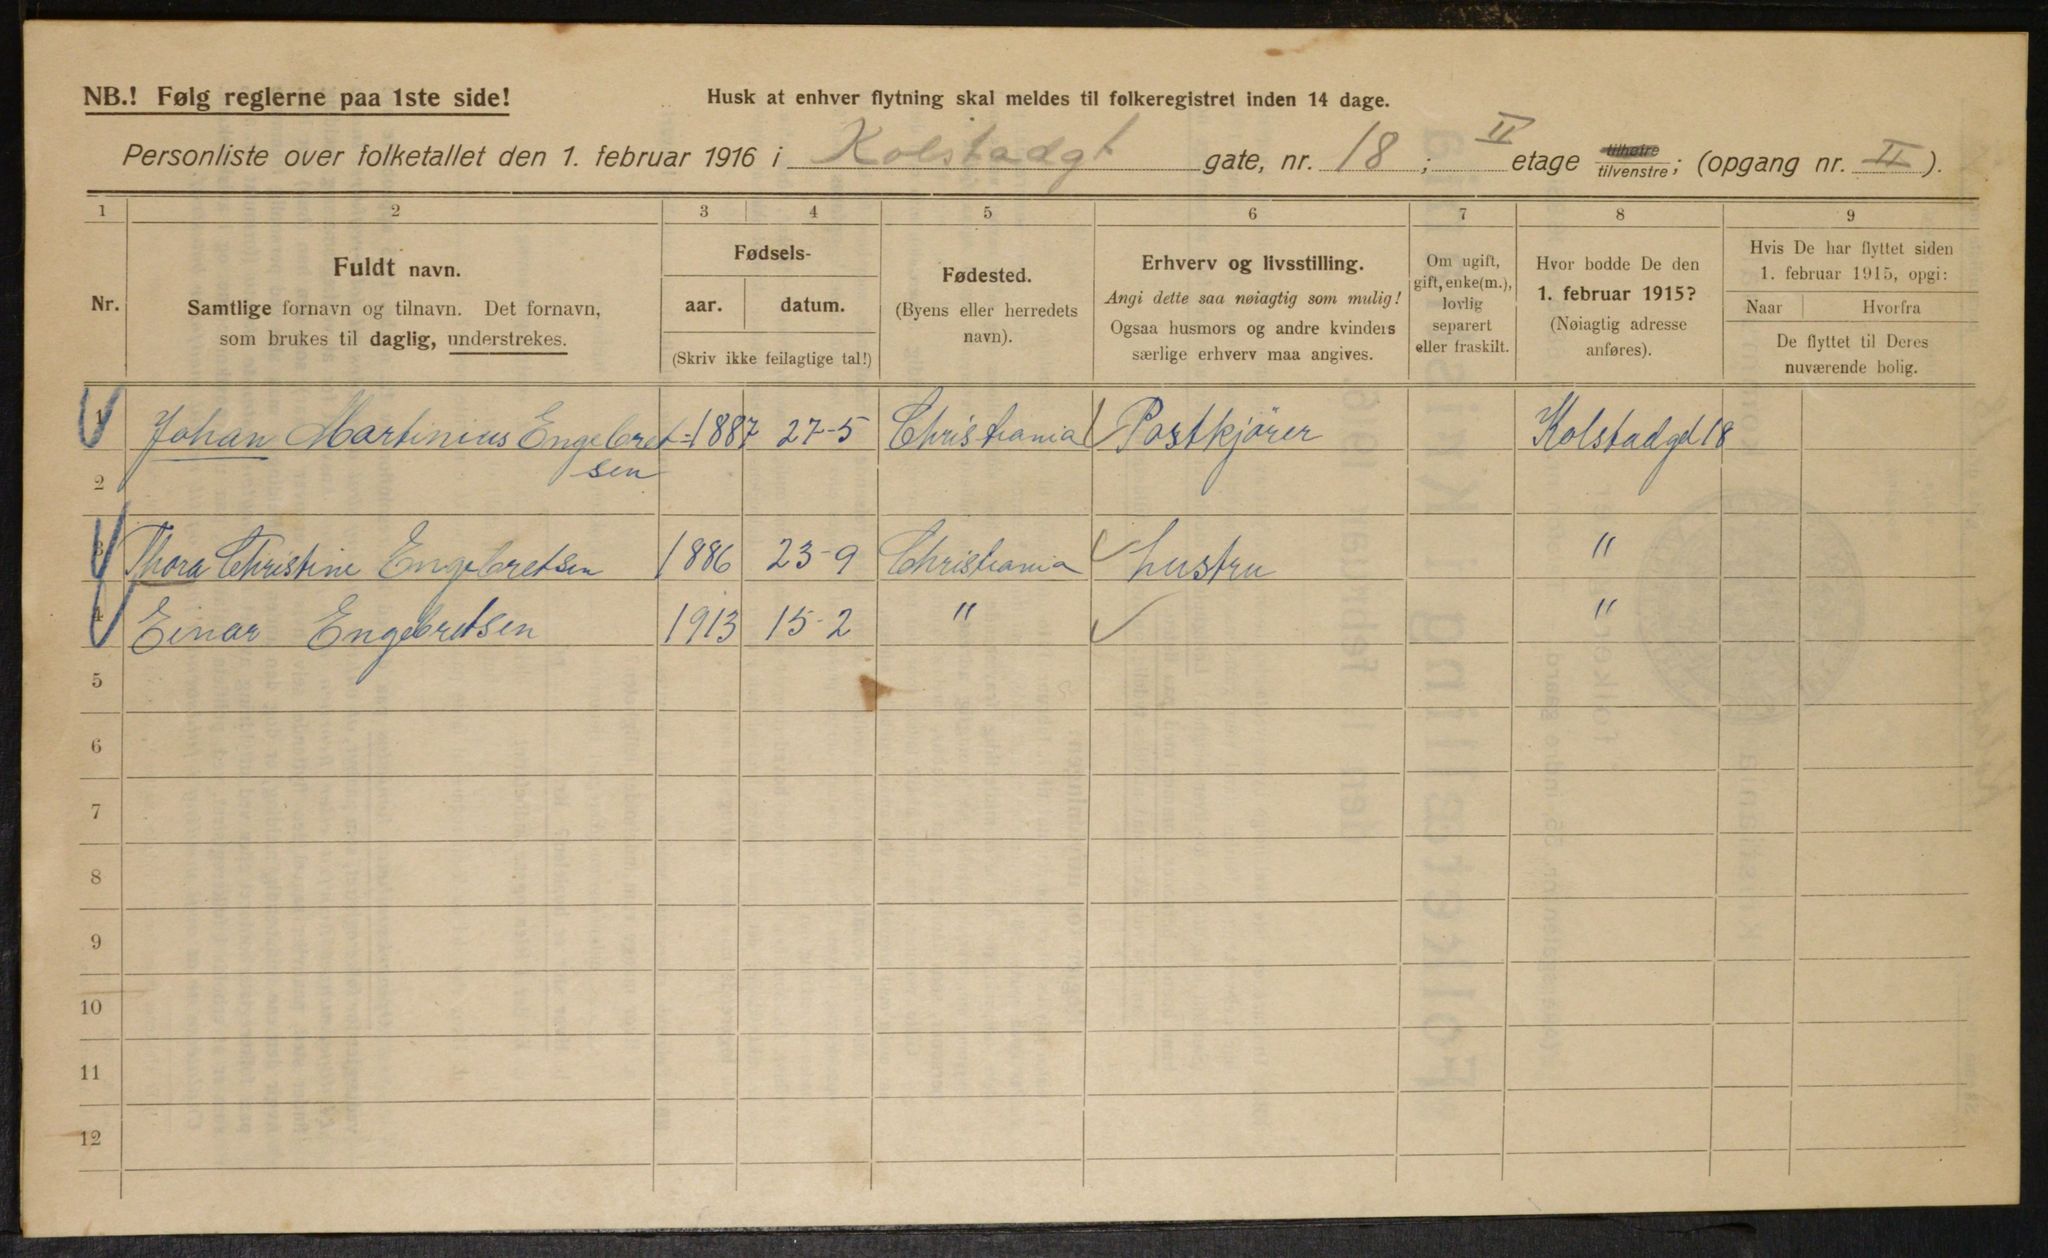 NB.! Følg reglerne paa 1ste side!
Husk at enhver flytning skal meldes til folkeregistret inden 14 dage.
Personliste over folketallet den 1. februar 1916 i Kolstadgt gate, nr. 18; II etage tilhøire tilvenstre; (opgang nr. II).
1 2 3 4 5 6 7 8 9
Nr.
Fuldt navn.
Samtlige fornavn og tilnavn. Det fornavn,
som brukes til daglig, understrekes.
Fødsels-
aar. datum.
(Skriv ikke feilagtige tal!)
Fødested.
(Byens eller herredets
navn).
Erhverv og livsstilling.
Angi dette saa nøiagtig som mulig!
Ogsaa husmors og andre kvinders
særlige erhverv maa angives.
Om ugift,
gift, enke(m.),
lovlig
separert
eller fraskilt.
Hvor bodde De den
1. februar 1915?
(Nøiagtig adresse
anføres).
Hvis De har flyttet siden
1. februar 1915, opgi:
Naar Hvorfra
De flyttet til Deres
nuværende bolig.
1 Johan Martinius Engebret- 1887 27-5 Christiania Postkjører Kolstadgd 18
sen
2
3 Thora Christine Engebretsen 1886 23-9 Christiania hustru "
4 Einar Engebretsen 1913 15-2 " "
5
6
7
8
9
10
11
12